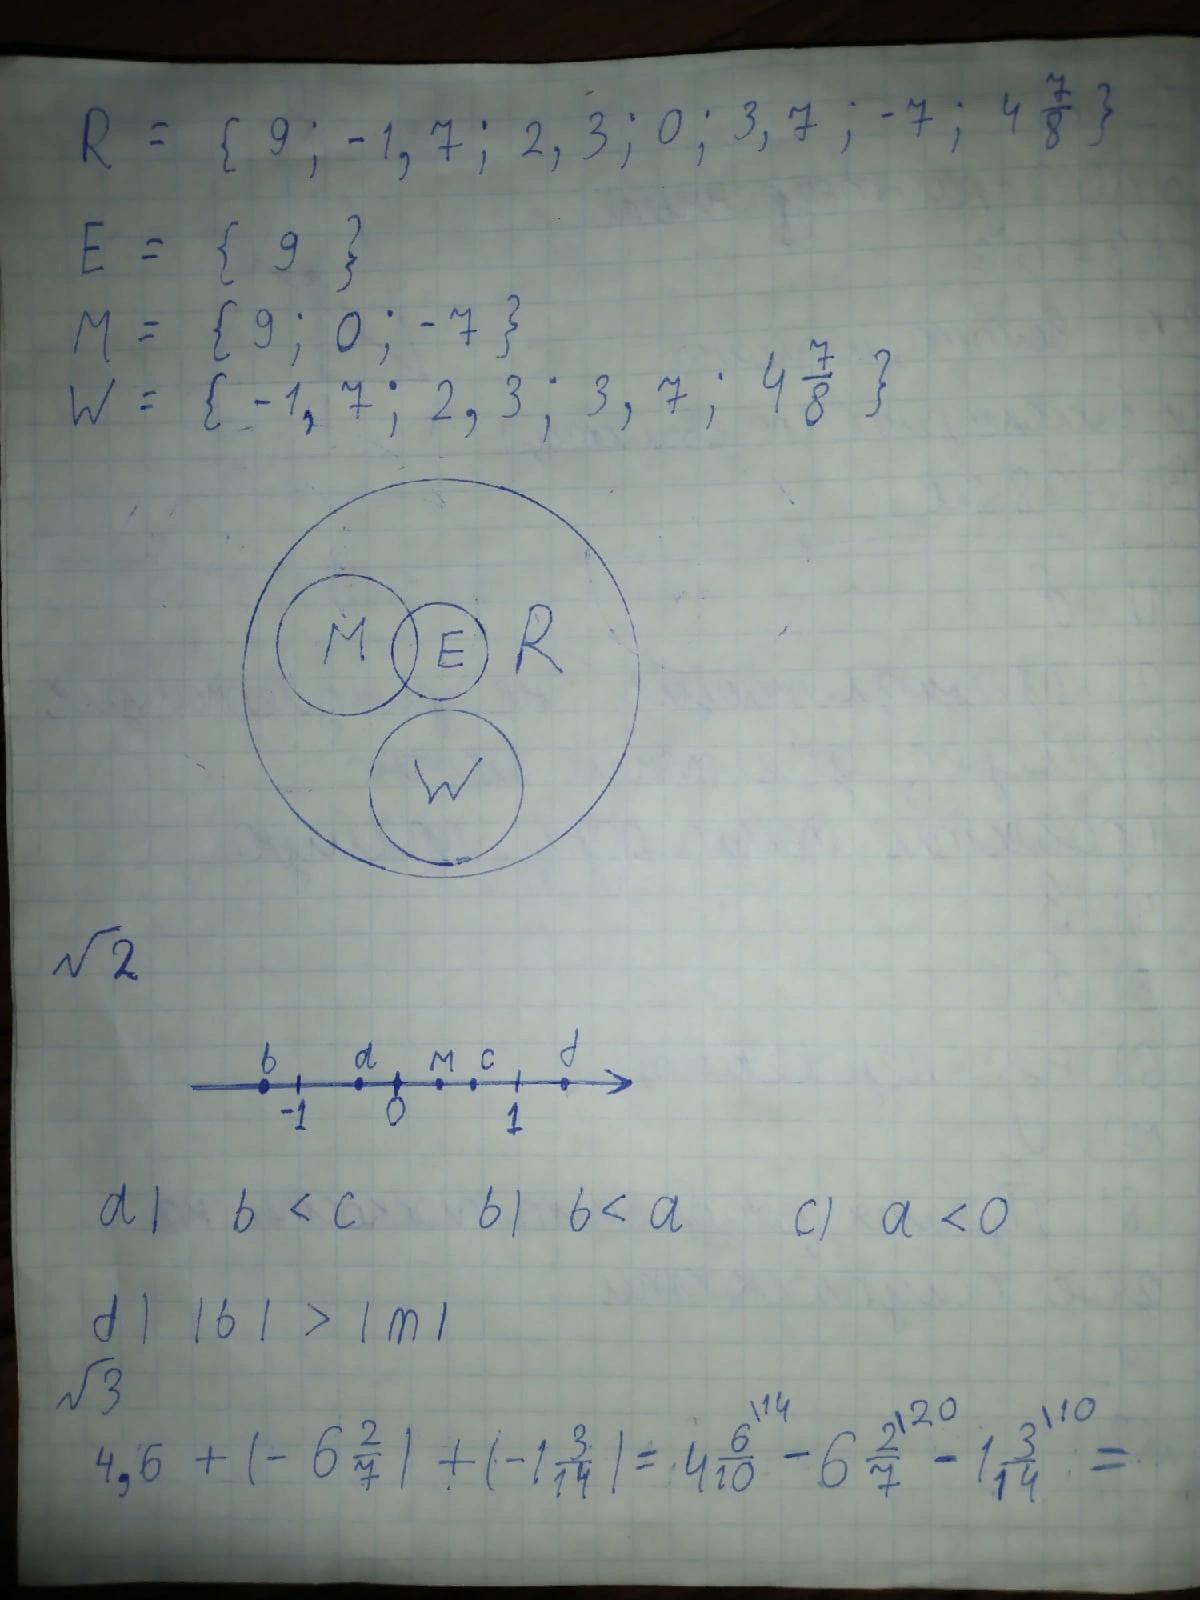 R = { 9; -1,7; 2,3; 0; 3,7; -7; 4 7/8 }
E = { 9 }
M = { 9; 0; -7 }
W = { -1,7; 2,3; 3,7; 4 7/8 }
M E R
W
√2
b a M c d
-1 0 1
a) b < c b) b < a c) a < 0
d) |b| > |m|
√3
4,6 + (- 6 2/7) + (-1 3/14) = 4 6/10 \14 - 6 2/7 \20 - 1 3/14 \10 =